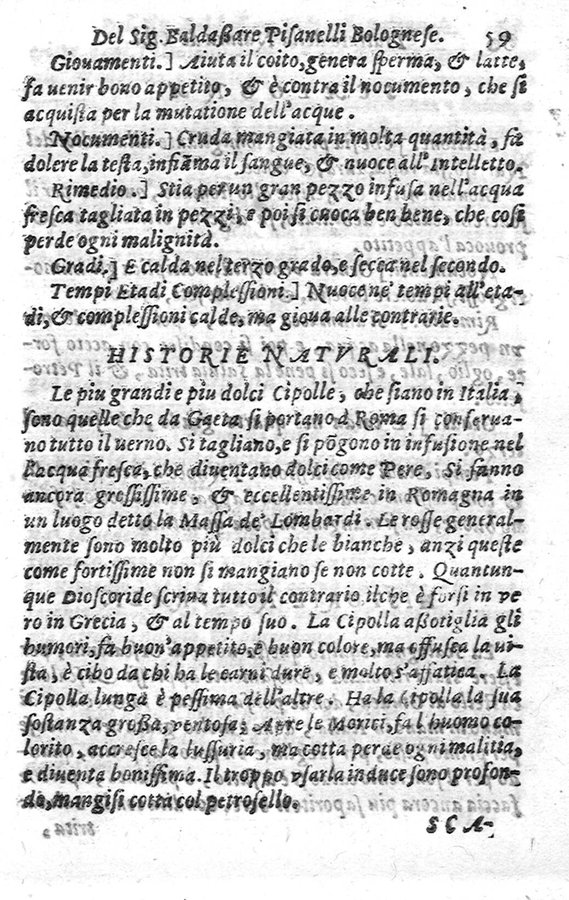 Del Sig. Baldaßare Pisanelli Bolognese. 59
Giouamenti.] Aiuta il coito, genera sperma, & latte,
fa uenir bono appetito, & è contra il nocumento, che si
acquista per la mutatione dell'acque.
Nocumenti.] Cruda mangiata in molta quantità, fa
dolere la testa, infiāma il sangue, & nuoce all'Intelletto.
Rimedio.] Stia per un gran pezzo infusa nell'acqua
fresca tagliata in pezzi, e poi si cuoca ben bene, che cosi
perde ogni malignità.
Gradi.] E calda nel terzo grado, e secca nel secondo.
Tempi Etadi Complessioni.] Nuoce ne' tempi all'eta-
di, & complessioni calde, ma gioua alle contrarie.
HISTORIE NATVRALI.
Le piu grandi e più dolci Cipolle, che siano in Italia,
sono quelle che da Gaeta si portano à Roma si conserua-
no tutto il uerno. Si tagliano, e si pōgono in infusione nel
l'acqua fresca, che diuentano dolci come Pere, Si fanno
ancora grossissime, & eccellentissime in Romagna in
un luogo detto la Massa de' Lombardi. Le rosse general-
mente sono molto più dolci che le bianche, anzi queste
come fortissime non si mangiano se non cotte. Quantun-
que Dioscoride scriua tutto il contrario ilche è forsi in ve
ro in Grecia, & al tempo suo. La Cipolla aßotiglia gli
humori, fa buon'appetito, e buon colore, ma offusca la ui-
sta, è cibo da chi ha le carni dure, e molto s'affatica. La
Cipolla lunga è pessima dell'altre. Ha la Cipolla la sua
sostanza großa, ventosa; Apre le Morici, fa l'huomo co-
lorito, accresce la lussuria, ma cotta perde ogni malitia,
e diuenta bonissima. Il troppo vsarla induce sono profon-
do, mangisi cotta col petrosello.
SCA-